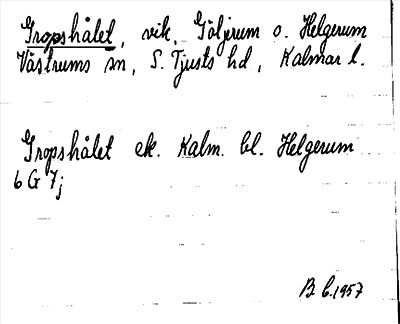 Gropshålet, vik, Göljerum o. Helgerum
Västrums sn, S. Tjusts hd, Kalmar l.
Gropshålet ek. Kalm. bl. Helgerum
6 G 7j
B L.1957